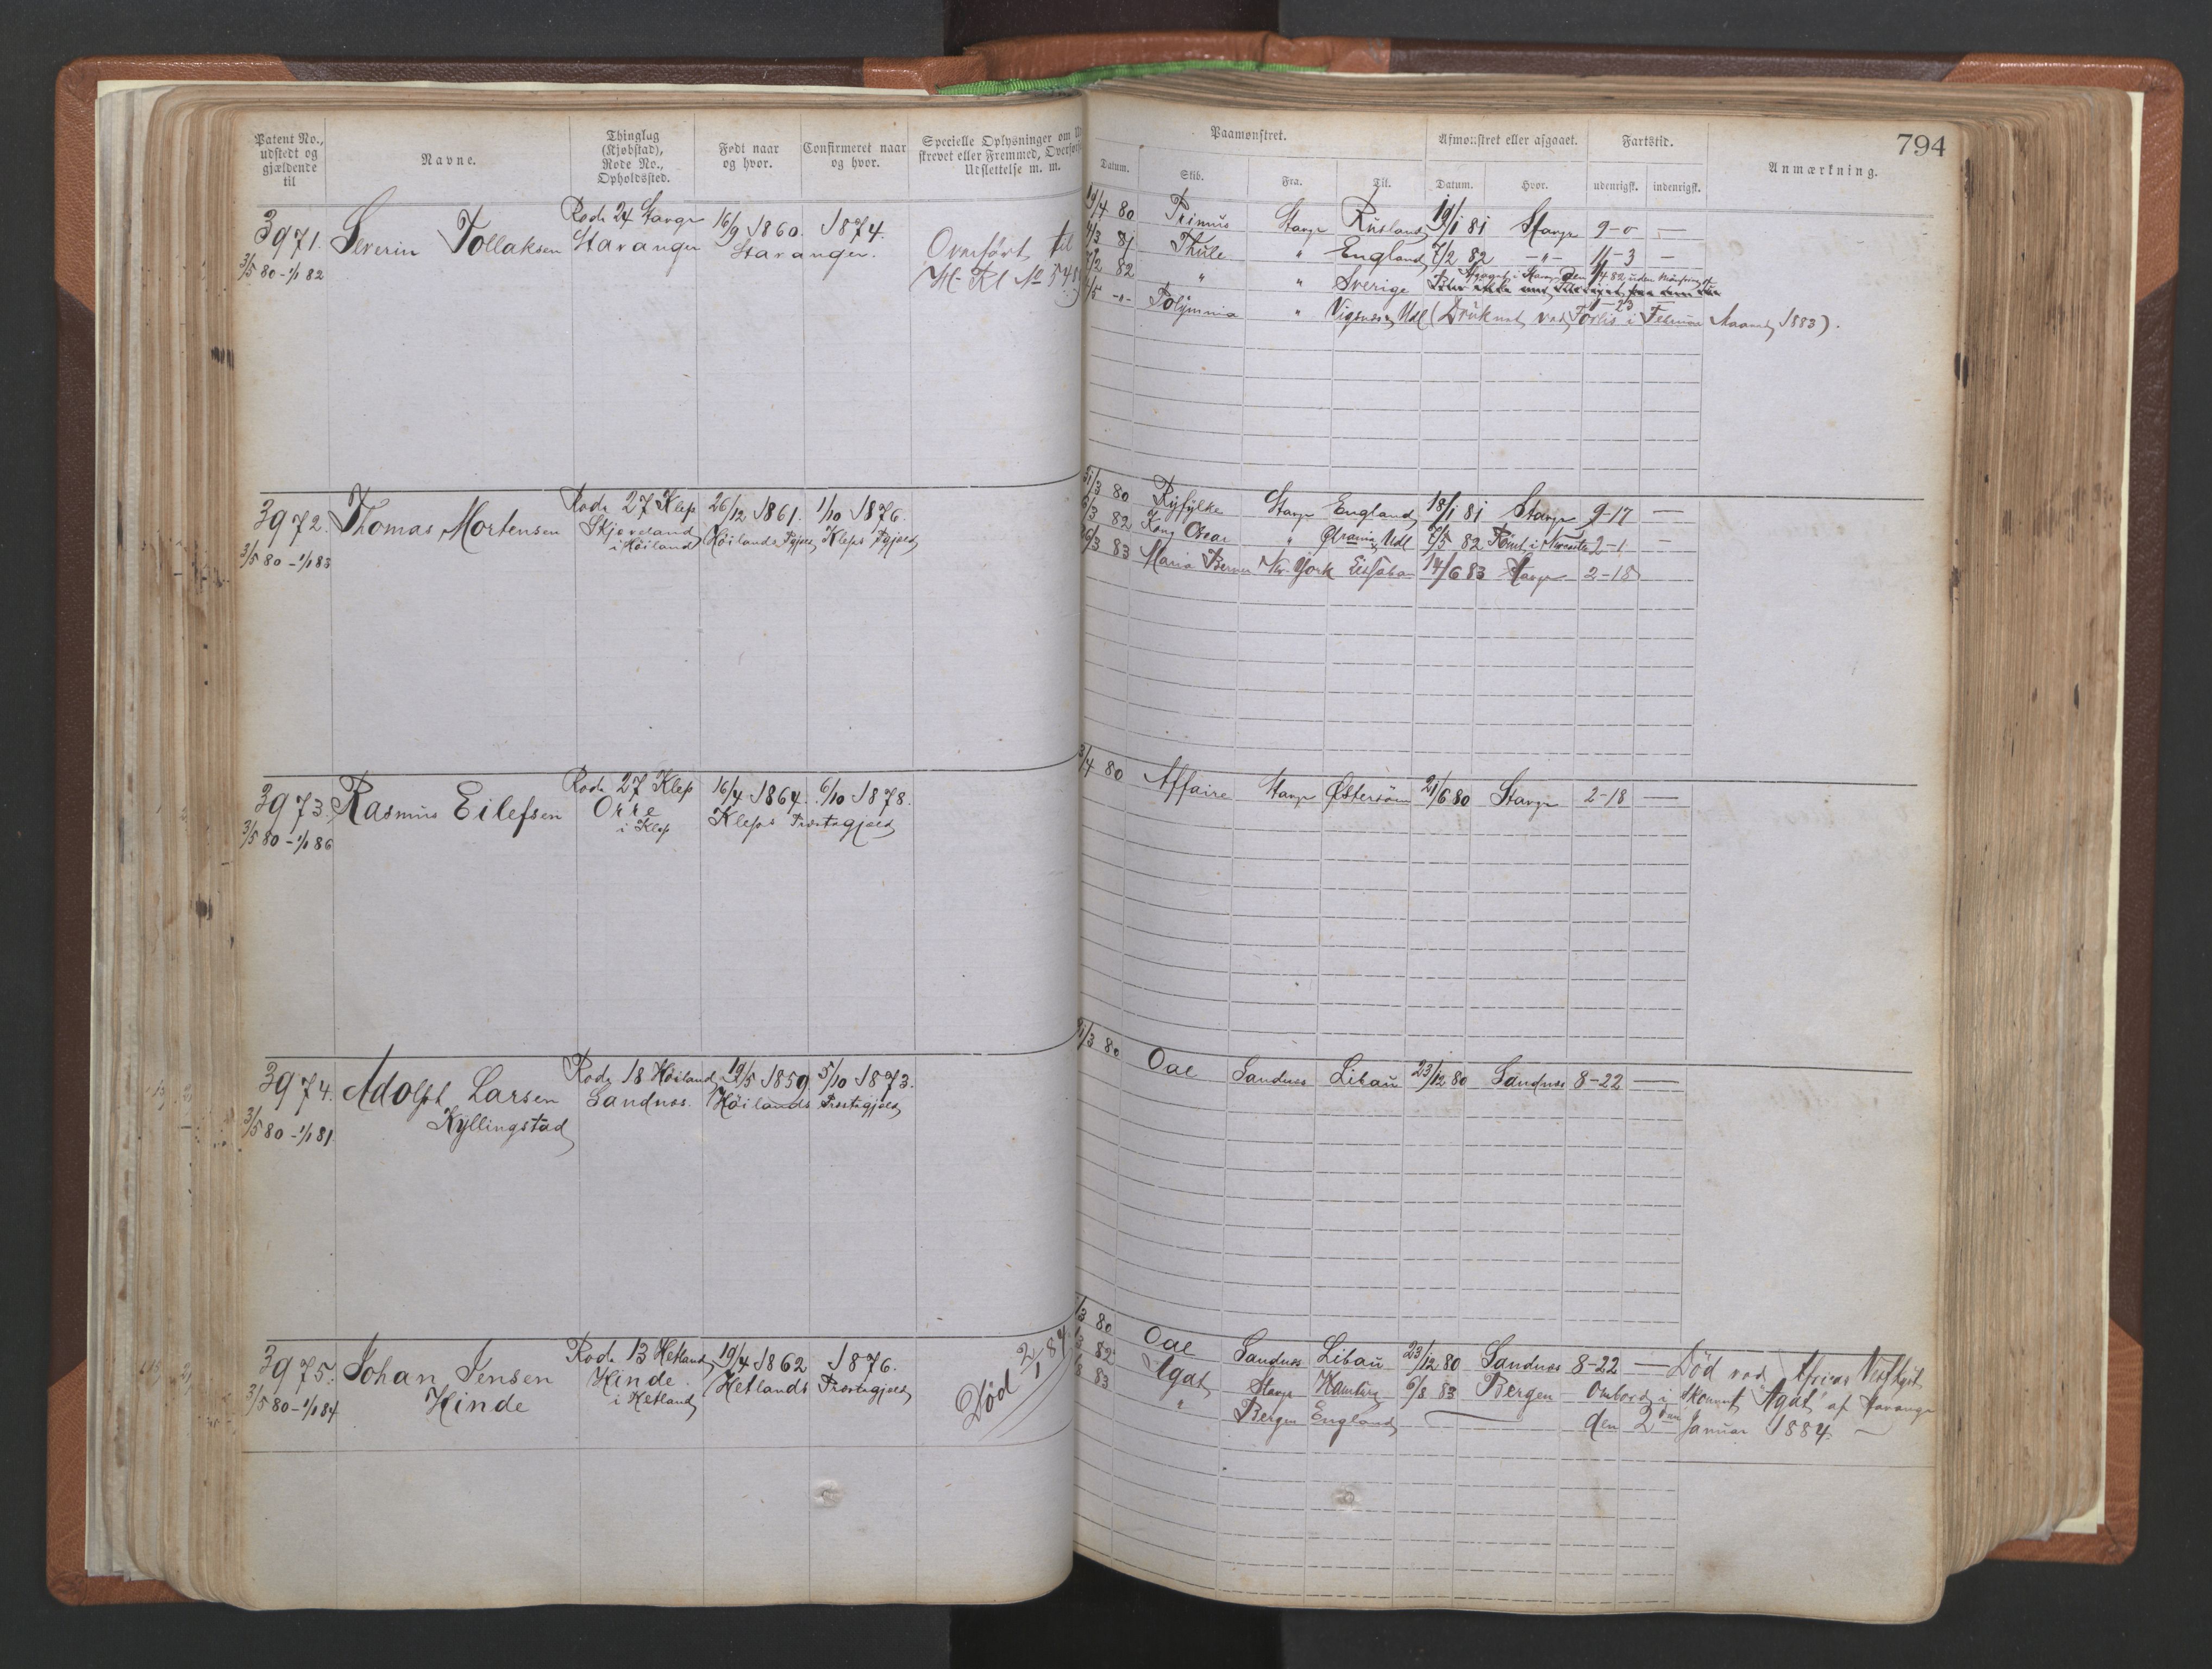 Patent No.,
udstedt og
gjældende
til
Navne.
Thinglag
(Kjøbstad),
Rode No.,
Opholdssted.
Født naar
og hvor.
Confirmeret naar
og hvor.
Specielle Oplysninger om
skrevet eller Fremmed, Overførsel
Udslettelse m. m.
3971.
3/5 80 - 1/1 82
Severin Tollaksen
Rode 24 Stavgr
Stavanger
16/9 1860. 1874.
Stavanger.
Overført til
H- Rl No 54
3972.
3/5 80 - 1/1 83
Thomas Mortensen
Rode 27 Klep
Skjæveland
i Höiland
26/12 1861.
Höilands Pgjeld
1/10 1876.
Kleps Pgjeld
3973.
3/5 80 - 1/1 86
Rasmus Eilefsen
Rode 27 Klep
Orre
i Klep
16/4 1864. 6/10 1878.
Kleps Præstegjeld
3974.
3/5 80 - 1/1 81
Adolph Larsen
Kyllingstad
Rode 18 Höiland
Sandnæs.
19/5 1859. 5/10 1873.
Höilands Præstegjeld
3975.
3/5 80 - 1/1 84
Johan Jensen
Hinde
Rode 13 Hetland
Hinde.
i Hetland
19/4 1862 1876.
Hetlands Præstegjeld
Död 2/1 84.
794
Paamønstret.
Afmønstret eller afgaaet.
Fartstid.
Anmærkning.
Datum.
Skib.
Fra.
Til.
Datum.
Hvor.
udenrigsk.
indenrigsk.
19/4 80 Primus Stavgr Rusland 19/1 81 Stavgr 9-0 —
/3 81 Thule " England 7/2 82 -"- 11-3 —
7/2 82 " " Sverige
/5 -"- Polymnia " Vigsnes, Udl (Druknet ved Forlis i Februar Maaned 1883).
31/3 80 Ryfylke Stavgr England 18/1 81 Stavgr 9-17 —
/3 82 Kong Oscar " Udl 7/5 82 2-1 —
26/3 83 Maria Berner New York Lissabon 14/6 83 Stavgr 2-18
3/4 80 Affaire Stavgr Østersöen 21/6 80 Stavgr 2-18 —
1/3 80 Oae Sandnes Libau 23/12 80 Sandnes 8-22 —
/3 80 Oae Sandnes Libau 23/12 80 Sandnes 8-22 — Död ved Africas Vestkyst
/3 82 Agat Stavgr Hamburg 6/8 83 Bergen ombord i Skonnert "Agat" af Stavanger
/8 83 " Bergen England — den 2den Januar 1884. —